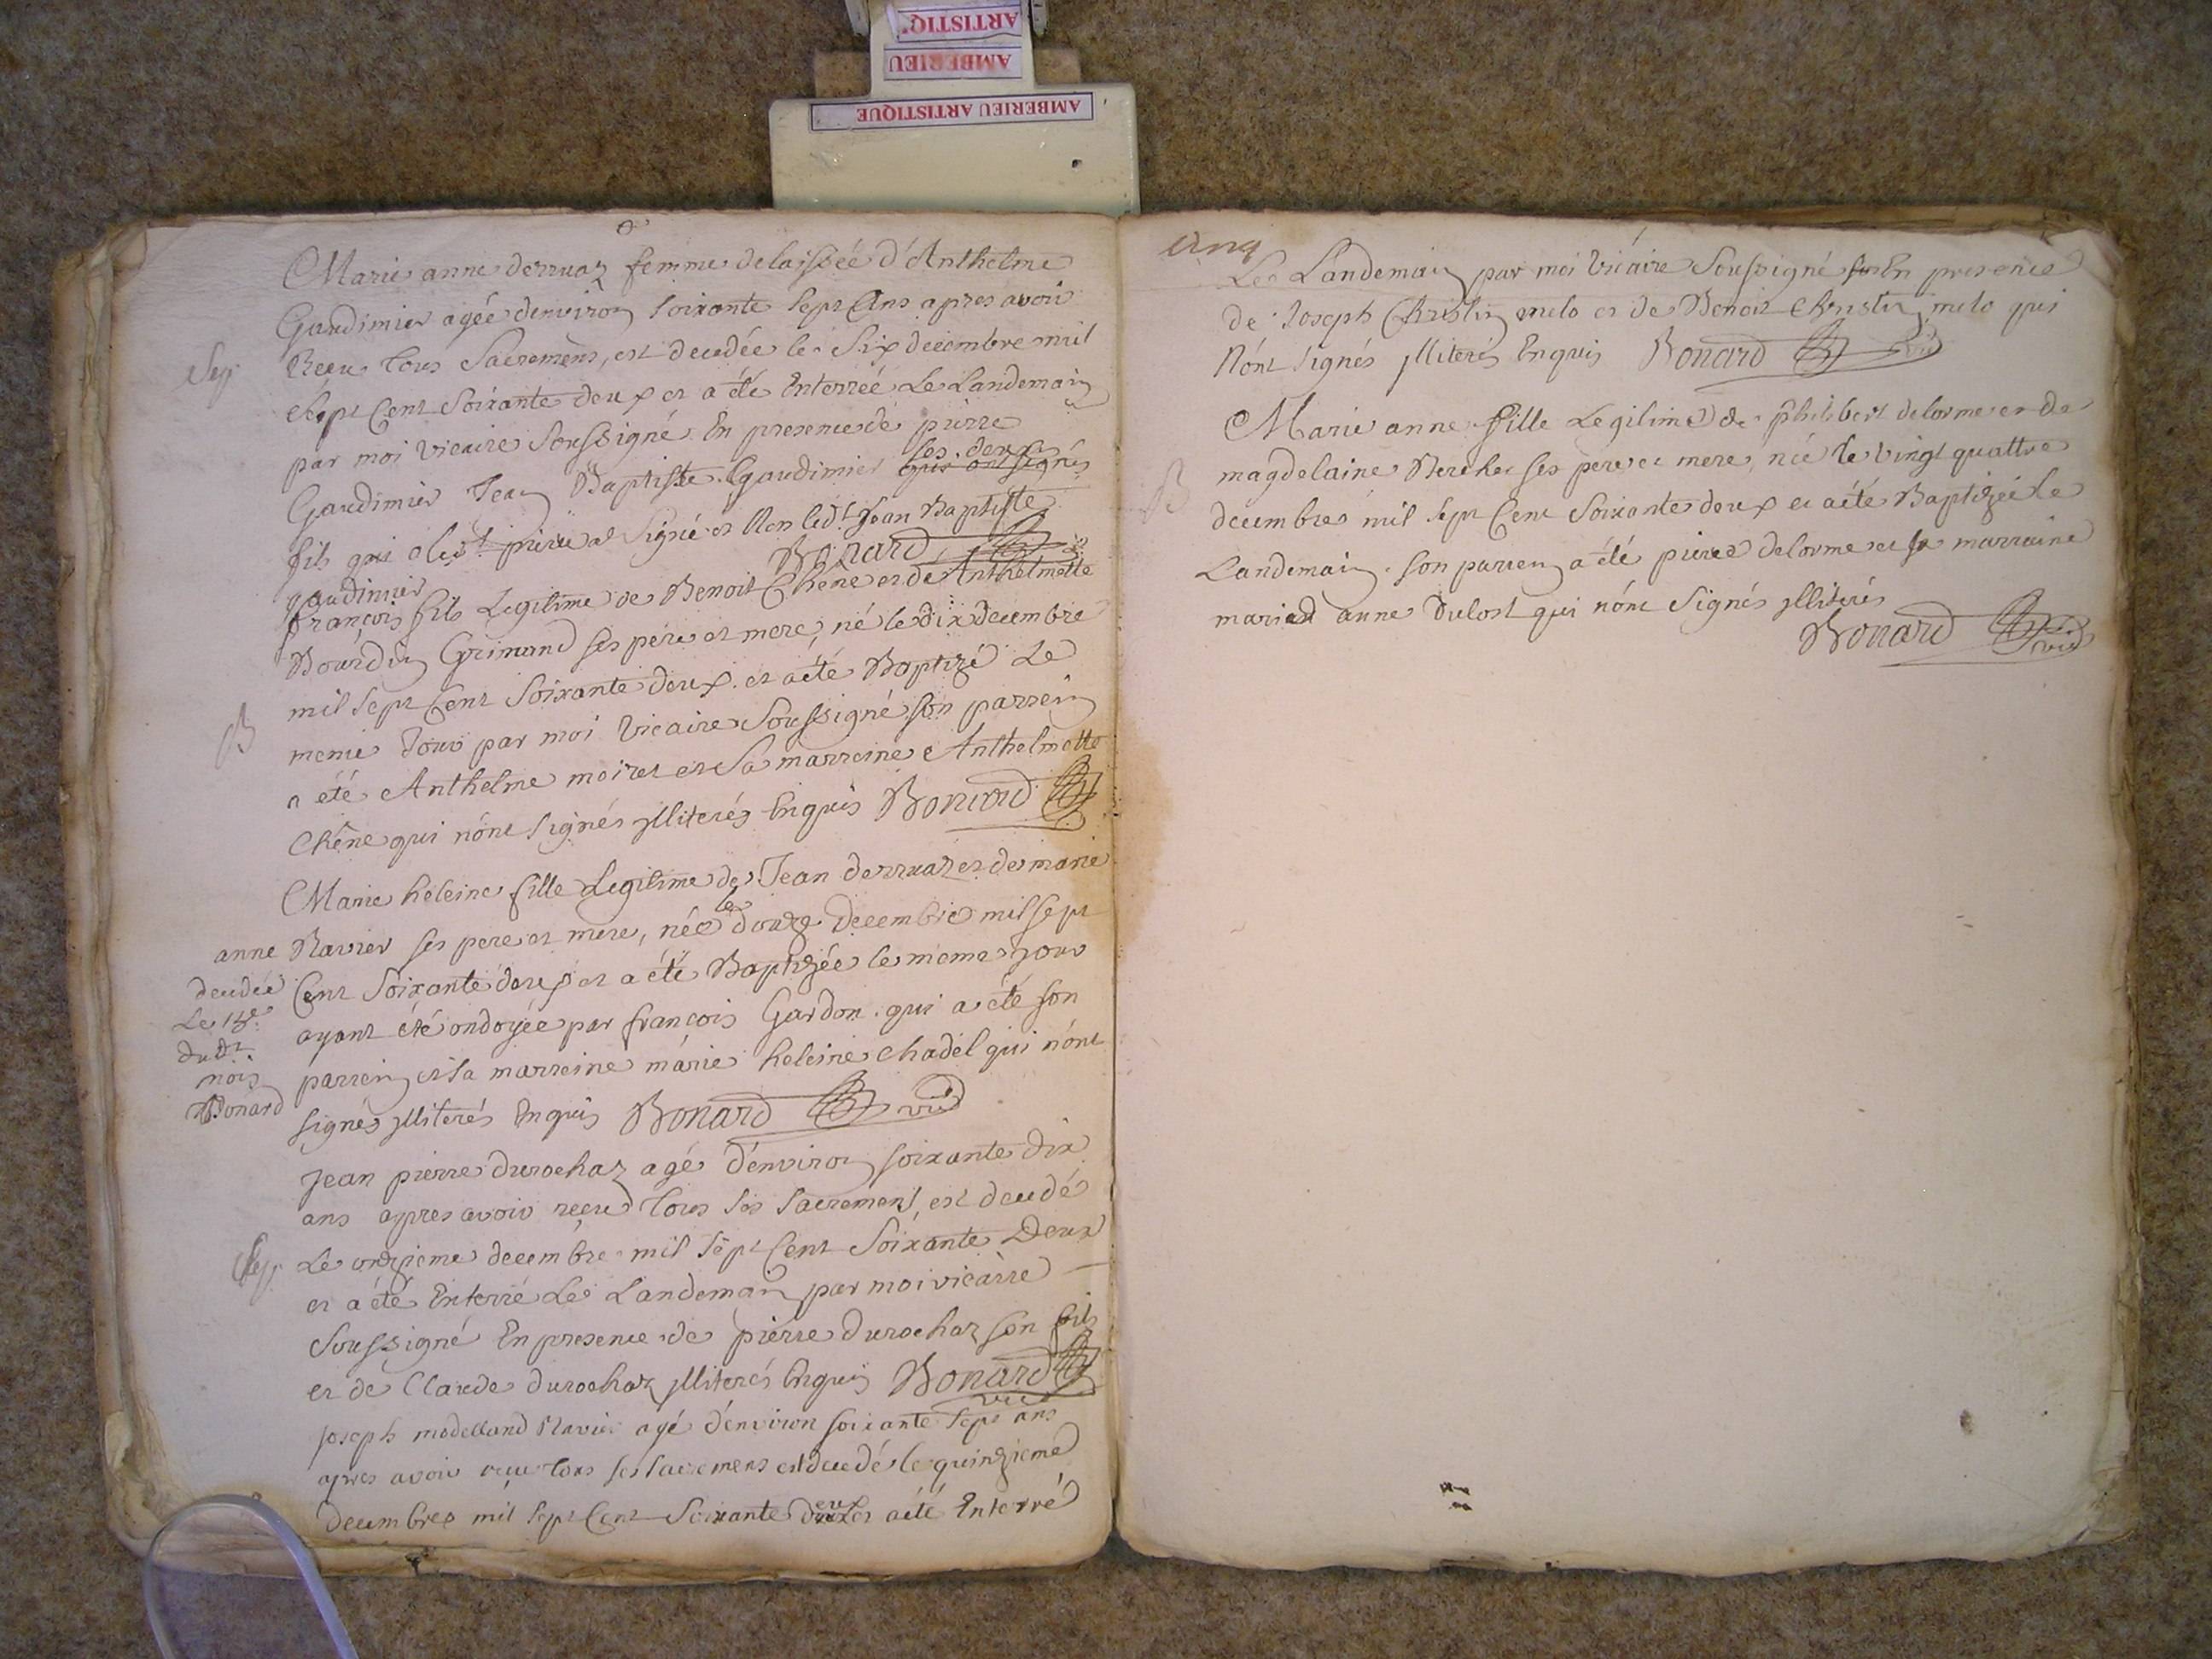 ARTISTIQ
AMBERIEU
AMBERIEU ARTISTIQUE
Marie anne derruaz femme delaissée d'Anthelme
Gaudimier agée denviron soixante sept ans apres avoir
Sep. Reçu tous Sacremens, est decedée le Six decembre mil
sept Cent Soixante deux et a été Enterrée Le Landemain
par moi vicaire Soussigné En presence de pierre
Gaudimier Jean Baptiste Gaudimier ses deux qui ont signés
fils qui pierre a Signé et Non led.t Jean Baptiste
gaudimier Bonard
françois fils Legitime de Benoit Chêne et de Anthelmette
Bourdin Grimand ses pere et mere, né le dix decembre
mil sept Cent Soixante deux et a été Baptizé Le
B meme Jour par moi Vicaire Soussigné son parrein
a été Anthelme moiret et Sa marreine Anthelmette
Chêne qui nónt signés jlliterés Enquis Bonard
Marie heleine fille Legitime de Jean derruaz et de marie
anne Ravier ses pere et mere, née le douze Decembre mil sept
Cent Soixante deux et a été Baptizée le meme jour
ayant été ondoyée par françois Gardon qui a été son
parrein et sa marreine marie heleine chadel qui nónt
signés jlliterés Enquis Bonard vic
decedée
Le 13e
du dt
mois
Bonard
Jean pierre durochaz agé d'environ soixante dix
ans apres avoir reçu tous ses sacremens, est decedé
Sep. Le onzieme decembre mil sept Cent Soixante Deux
et a été Enterré Le Landemain par moi vicaire
Soussigné En presence de pierre durochaz son fils
et de Claude durochaz jlliterés Enquis Bonard
vic
joseph modelland Ravier agé d'environ soixante sept ans
apres avoir reçu tous ses sacremens est decedé le quinzieme
decembre mil sept Cent Soixante deux et a été Enterré
cinq
Le Landemain par moi Vicaire Soussigné En presence
de Joseph Christin melo et de Benoit Christin melo qui
Nónt signés jlliterés Enquis Bonard vic
Marie anne fille Legitime de philibert delorme et de
magdelaine Berchet ses pere et mere, née le vingt quattre
B decembre mil sept Cent Soixante deux et a été Baptizée Le
Landemain. son parrein a été pierre delorme et sa marraine
marie anne Dulost qui nónt Signés jlliterés
Bonard vic